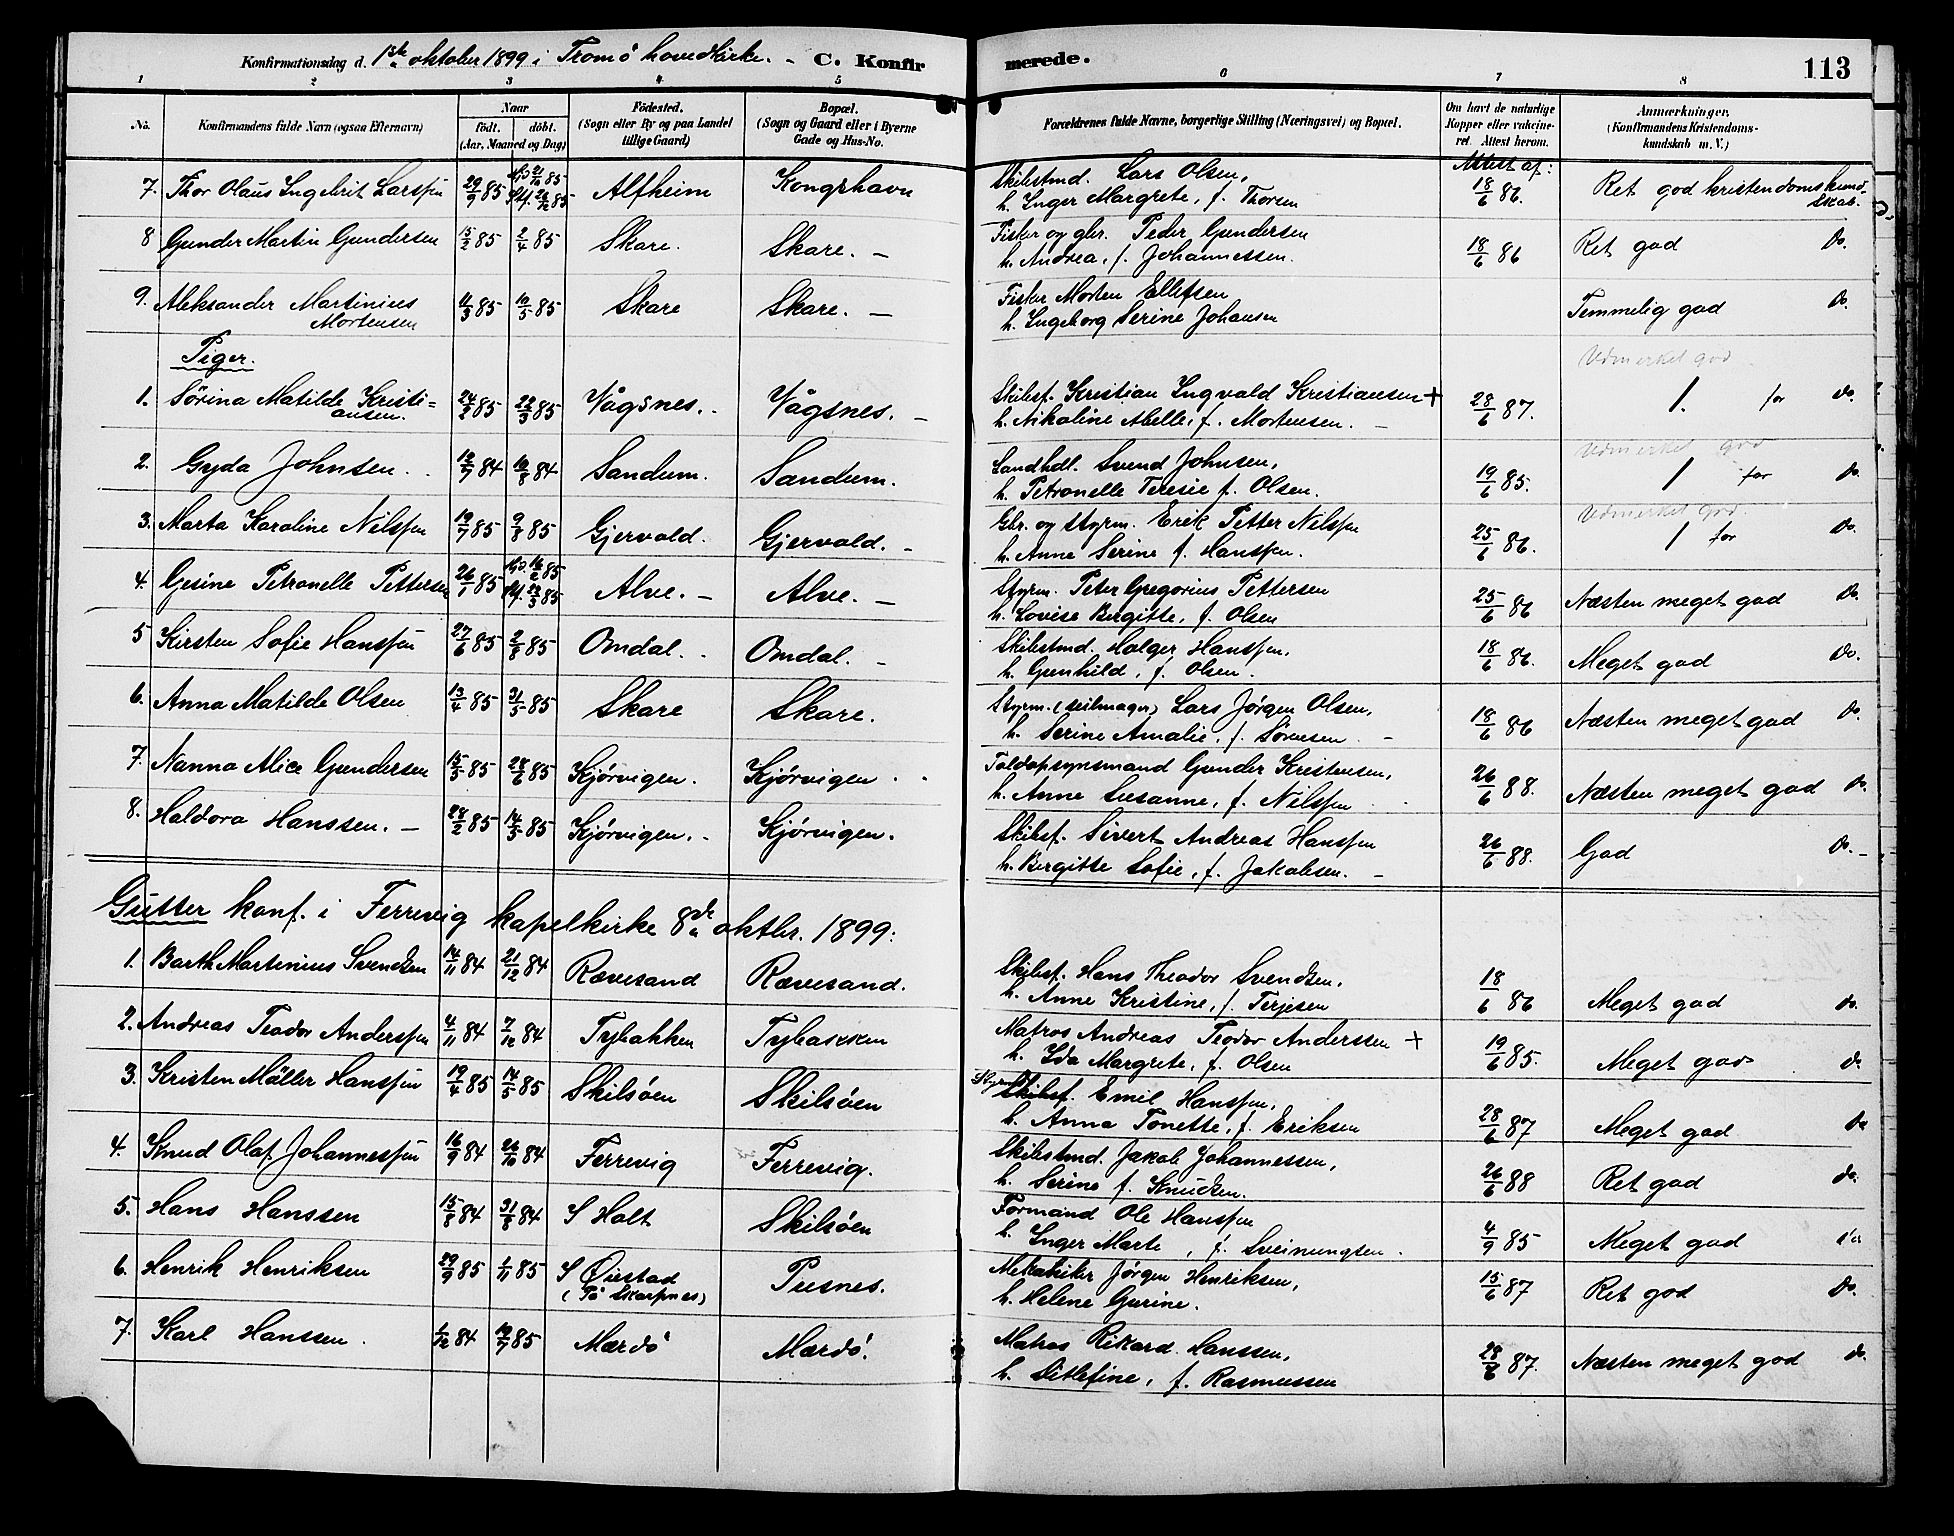 Konfirmationsdag d. 1ste oktober 1899 i Tromö hovedkirke. - C. Konfirmerede. 113
1 2 3 4 5 6 7 8
No. Konfirmandens fulde Navn (ogsaa Efternavn) Naar födt. döbt. (Aar, Maaned og Dag) Födested. (Sogn eller By og paa Landet tillige Gaard) Bopæl. (Sogn og Gaard eller i Byerne Gade og Hus-No. Forældrenes fulde Navne, borgerlige Stilling (Næringsvei) og Bopæl. Om havt de naturlige Kopper eller vakcineret. Attest herom. Anmærkninger, (Konfirmandens Kristendomskundskab m. V.)
Attest af:
7. Thor Olaus Ingebrit Larssen 29/9 85 Alfheim Kongshavn Skibstmd. Lars Olsen, 18/6 86. Ret god kristendomskundskab.
h. Inger Margrete, f. Thorsen
8 Gunder Martin Gundersen 15/3 85 2/4 85 Skare. Skare. - Fisker og gbr. Peder Gundersen 18/6 86 Ret god Do.
h. Andrea, f. Johannessen.
9. Aleksander Martinius 11/3 85 10/5 85 Skare Skare. - Fisker Morten Ellefsen Temmelig god Do.
Mortensen h. Ingeborg Serine Johansen
Piger.
Udmerket god
1. Sörina Matilde Kristi= 24/2 85 22/3 85 Vågsnes. Vågsnes. - Skibsf. Kristian Ingvald Kristiansen + 28/6 87. 1. for Do.
ansen. h. Nikoline Abelle, f. Mortensen.
Udmerket god
2. Gyda Johnsen. 12/9 84 10/8 84 Sandum. Sandum. Landhdl. Svend Johnsen, 19/6 85. 1 for Do.
h. Petronelle Teresie f. Olsen.
Udmerket god.
3. Marta Karoline Nilssen 19/7 85 9/8 85 Gjervold. Gjervold. - Gbr. og Styrm. Erik Petter Nilssen 25/6 86. 1 for Do.
h. Anne Serine f. Hanssen.
4. Gesine Petronelle Pettersen 26/1 85 Alve. - Alve. - Styrm. Peter Gregorius Pettersen 25/6 86 Næsten meget god Do.
h. Lovise Birgitte, f. Olsen
5 Kirsten Sofie Hanssen 27/6 85 2/8 85 Omdal. Omdal. - Skibstmd. Holger Hanssen, 18/6 86. Meget god Do.
h. Gunhild, f. Olsen.
6. Anna Matilde Olsen 13/4 85 31/5 85 Skare Skare. Styrm. (seilmager) Lars Jørgen Olsen, 18/6 86 Næsten meget god Do.
h. Serine Amalie, f. Sörensen
7. Nanna Alice Gundersen 15/5 85 28/6 85 Kjörvigen. Kjörvigen Toldopsynsmand Gunder Kristensen, 26/6 88. Næsten meget god Do.
h. Anne Susanne, f. Nilssen
8. Haldora Hanssen. - 28/2 85 14/5 85 Kjörvigen. Kjörvigen. Skibsf. Sivert Andreas Hanssen 26/6 88. God Do. -
h. Birgitte Sofie, f. Jakobsen. -
Gutter konf. i Ferrevig kapelkirke 8de oktbr. 1899:
1. Barth Martinius Svendsen 14/11 84 21/12 84 Rævesand Rævesand. Skibsf. Hans Theodor Svendsen, 18/6 86 Meget god do.
h. Anne Kristine, f. Terjesen
2. Andreas Teodor Anderssen 4/11 84 7/12 84 Tybakken Tybakken Matros Andreas Teodor Anderssen + 19/6 85. Meget god do
h. Ida Margrete, f. Olsen
3. Kristen Möller Hanssen 19/4 85 14/5 85 Skilsöen Skilsöen Styrm. Skibsf. Emil Hanssen, 28/6 87 Meget god do
h. Anna Tonette, f. Eriksen
4. Knud Olaf Johannessen 16/9 84 26/10 84 Ferrevig Ferrevig. Skibstmd. Jakob Johannessen, 26/6 88 Ret god do.
h. Serine f. Knudsen.
5. Hans Hanssen 15/8 84 31/8 84 S Holt Skilsöen Formand Ole Hanssen 4/9 85 Meget god do
h. Inger Marte, f. Sveinungsen.
6. Henrik Henriksen 29/9 85 1/11 85 S Öiestad Pusnes. Mekaniker Jørgen Henriksen, 15/6 87 Ret god Do.
(På Skarpnes) h. Helene Gurine.
7. Karl Hanssen. 1/12 84 12/7 85 Mærdö Mærdö. Matros Rikard Hanssen, 28/6 87. Næsten meget god do.
h. Ditlefine, f. Rasmussen